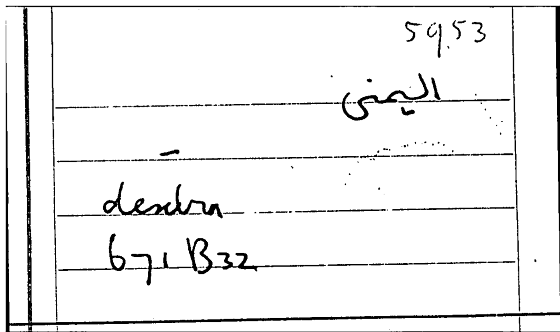 5953
اليمنى
-
dexdra
671 B32